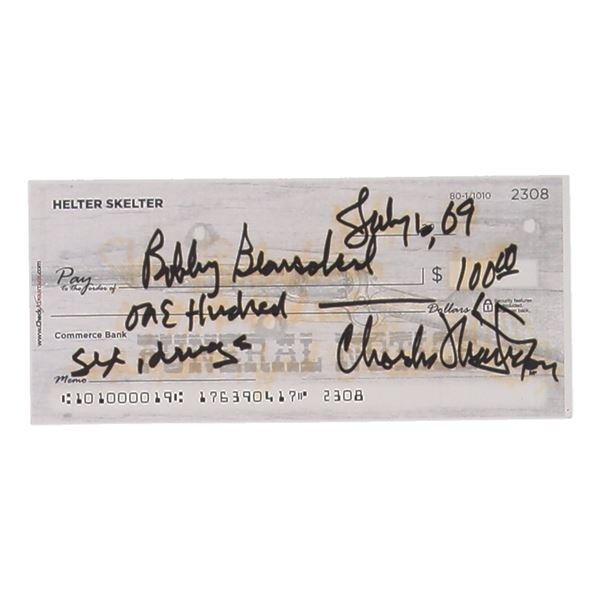 HELTER SKELTER
80-1/1010 2308
July 6, 69
Pay to the order of Bobby Beausoleil $ 100.00
ONE HUNDRED Dollars
Security features included. back.
Commerce Bank
Memo Sex, drugs Charles Manson
⑆101000019⑆ 176390417⑈ 2308